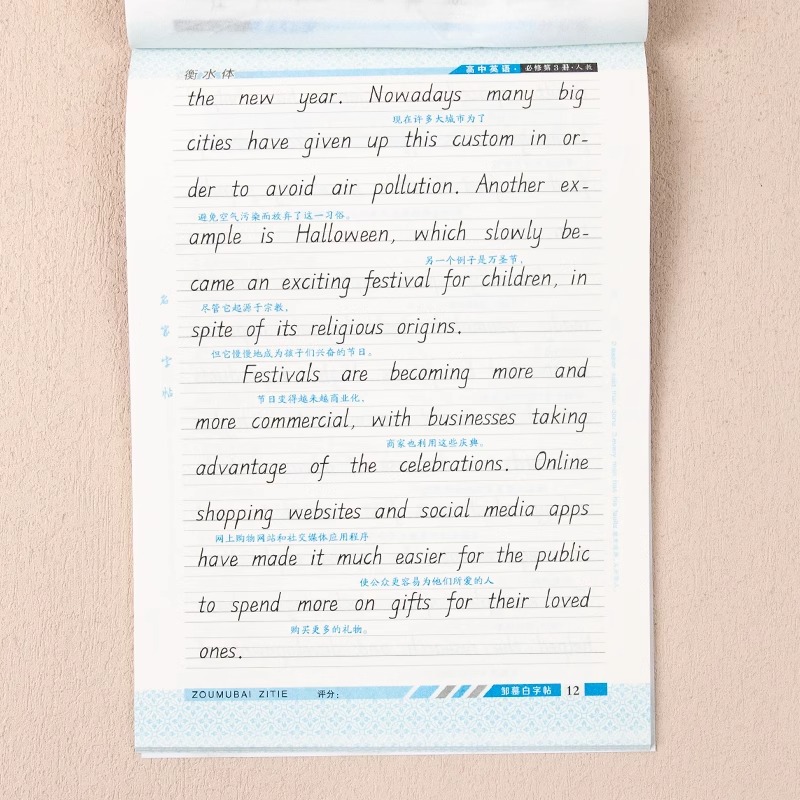 衡水体
高中英语·必修第3册·人教
the new year. Nowadays many big
现在许多大城市为了
cities have given up this custom in or-
der to avoid air pollution. Another ex-
避免空气污染而放弃了这一习俗。
ample is Halloween, which slowly be-
另一个例子是万圣节,
came an exciting festival for children, in
尽管它起源于宗教,
spite of its religious origins.
但它慢慢地成为孩子们兴奋的节日。
Festivals are becoming more and
节日变得越来越商业化,
more commercial, with businesses taking
商家也利用这些庆典。
advantage of the celebrations. Online
shopping websites and social media apps
网上购物网站和社交媒体应用程序
have made it much easier for the public
使公众更容易为他们所爱的人
to spend more on gifts for their loved
购买更多的礼物。
ones.
名家字帖
ZOUMUBAI ZITIE 评分:
邹慕白字帖 12